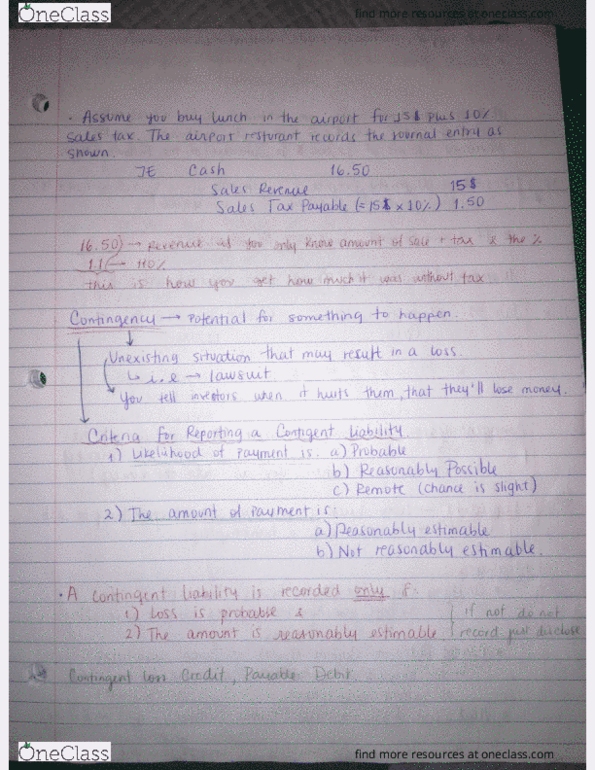 OneClass
find more resources at oneclass.com
• Assume you buy lunch in the airport for 15$ plus 10%
sales tax. The airport resturant records the journal entry as
shown.
JE Cash 16.50
Sales Revenue 15$
Sales Tax Payable (=15$ x 10%) 1.50
16.50) → Revenue if you only know amount of sale + tax & the %
1.1 → 110%
this is how you get how much it was without tax
Contingency → Potential for something to happen.
Unexisting situation that may result in a loss.
↳ i.e → lawsuit
You tell investors when it hurts them, that they'll lose money.
Criteria for Reporting a Contigent Liability
1) Likelihood of payment is. a) Probable
b) Reasonably Possible
c) Remote (chance is slight)
2) The amount of payment is:
a) Reasonably estimable
b) Not reasonably estimable.
• A contingent liability is recorded only if:
1) Loss is probable &
2) The amount is reasonably estimable
if not do not
record just disclose
Contingent loss Credit, Payable Debit.
OneClass
find more resources at oneclass.com